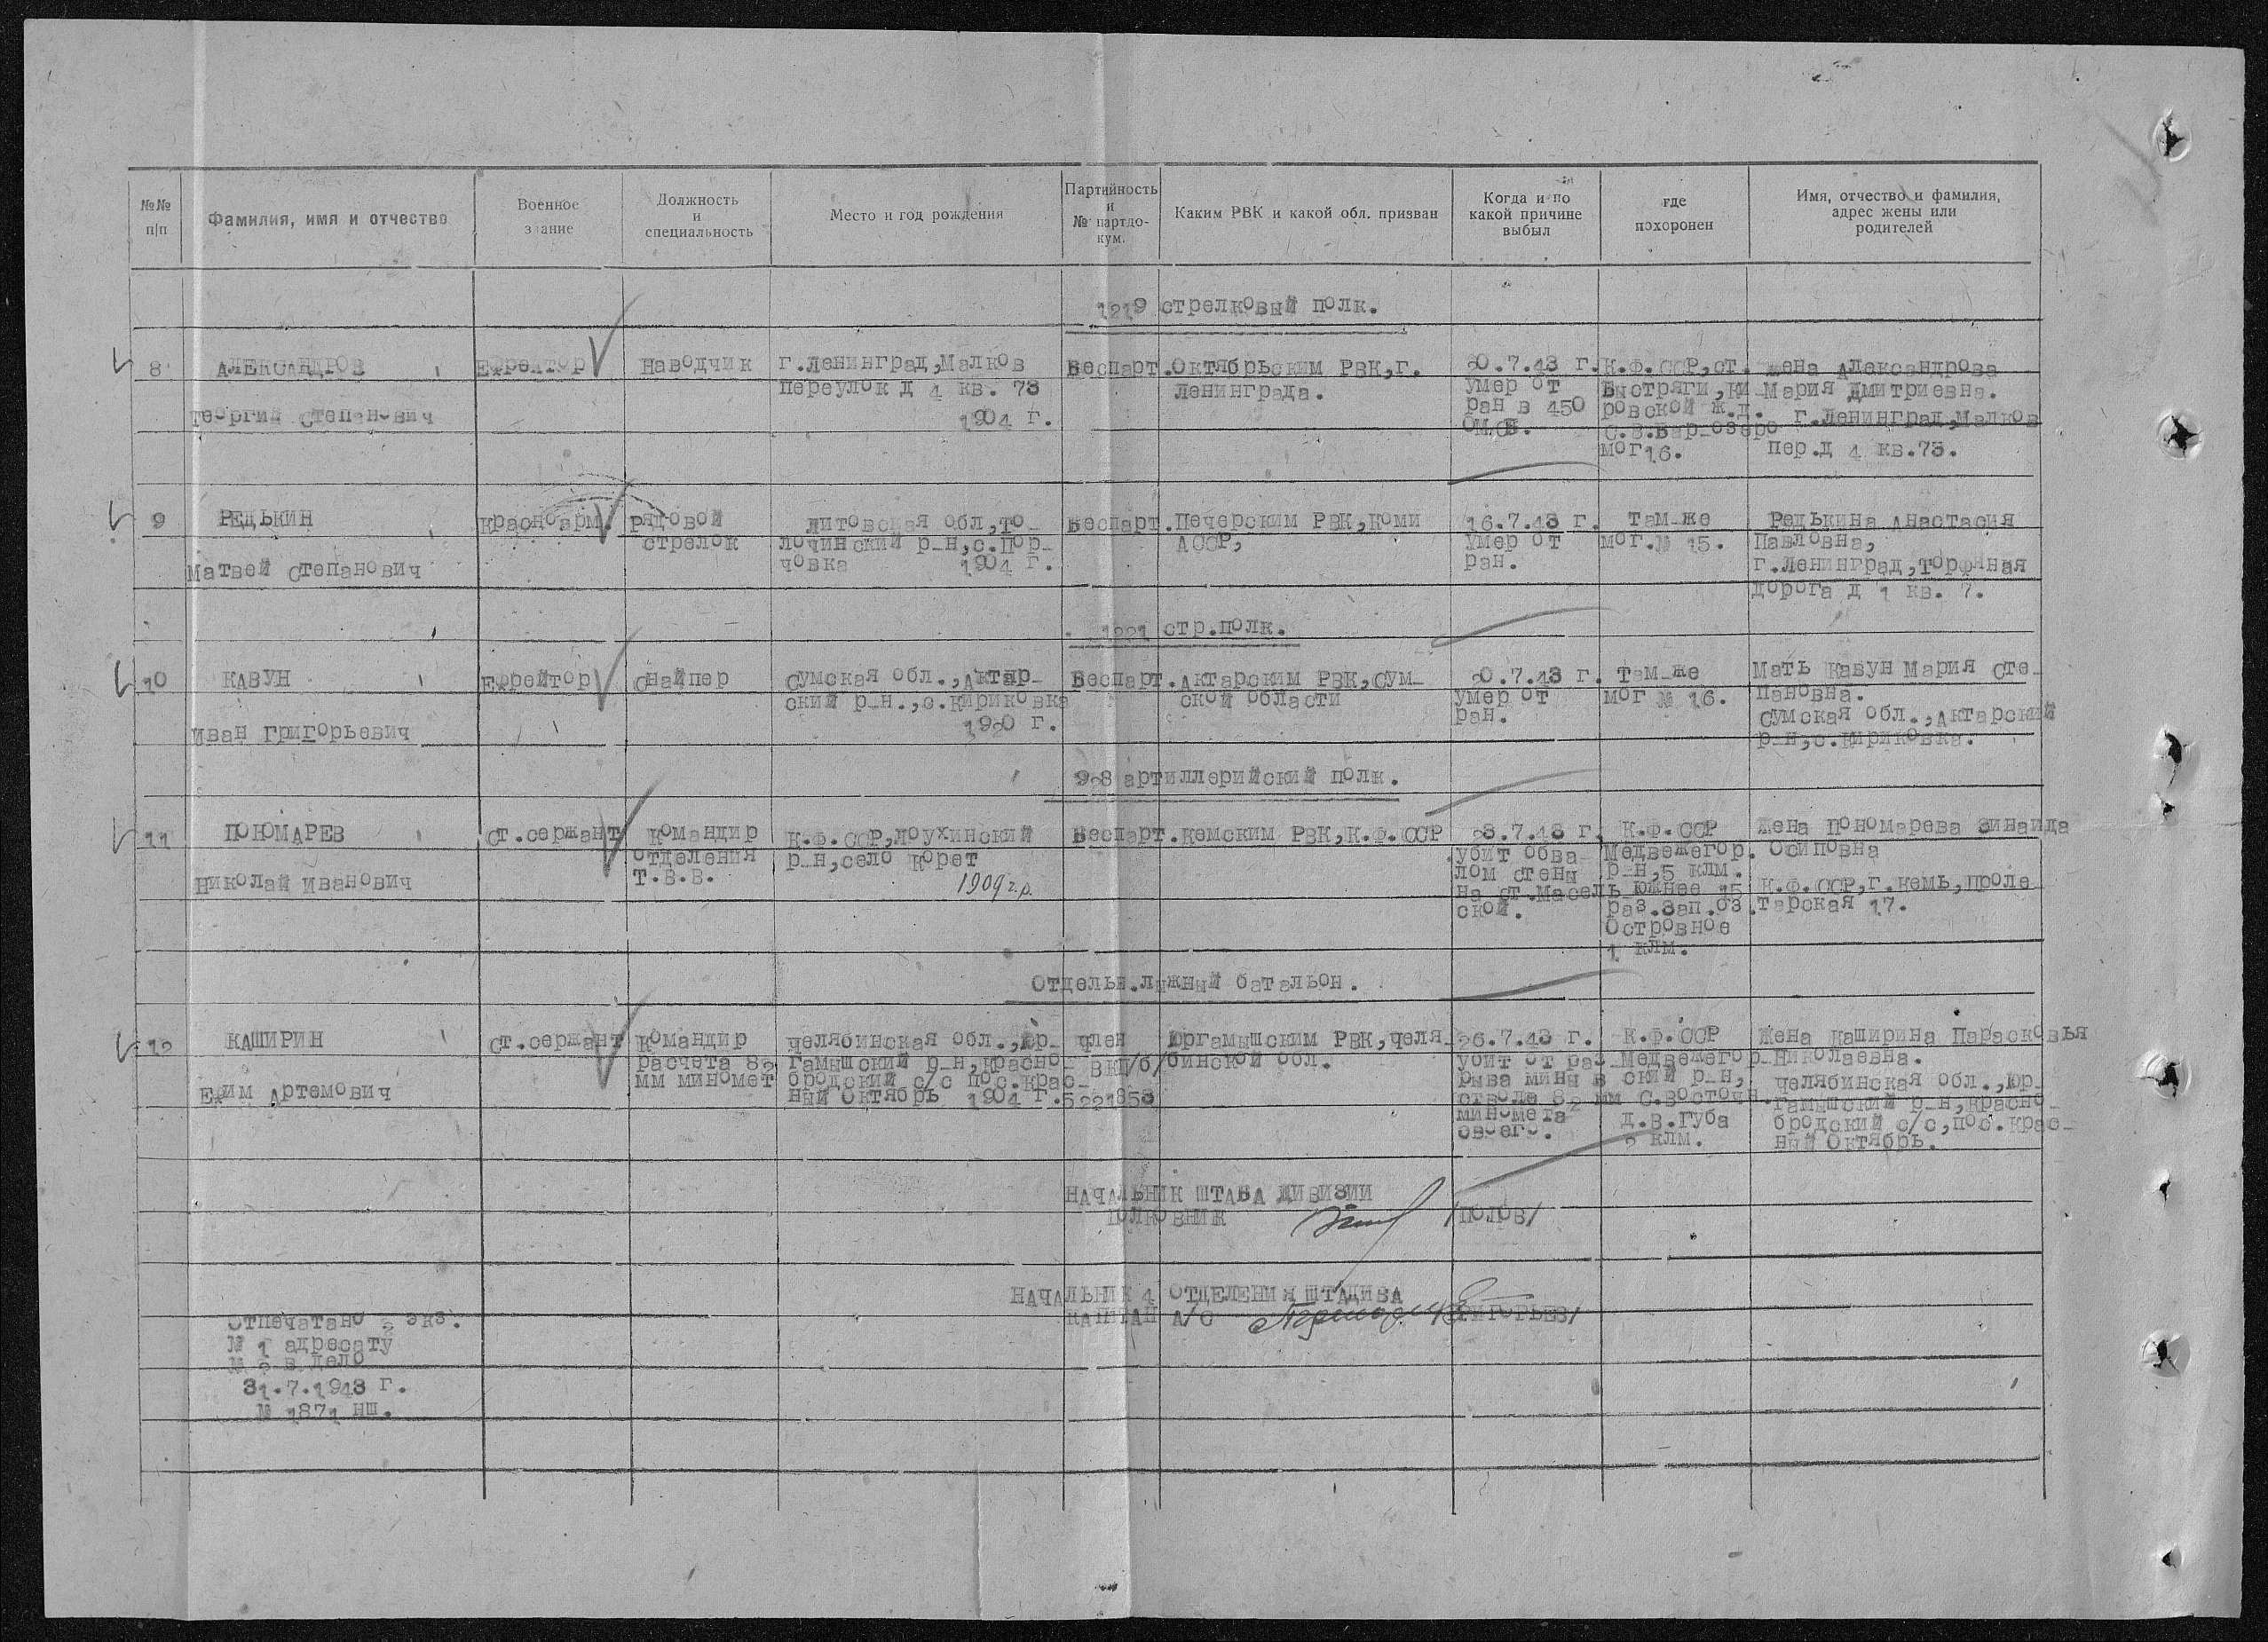 №№ п/п
Фамилия, имя и отчество
Военное звание
Должность и специальность
Место и год рождения
Партийность и № партдокум.
Каким РВК и какой обл. призван
Когда и по какой причине выбыл
где похоронен
Имя, отчество и фамилия, адрес жены или родителей
1219 стрелковый полк.
8 АЛЕКСАНДРОВ Ефрейтор Наводчик г.Ленинград,Малков Беспарт. Октябрьским РВК,г. 20.7.43 г. К.Ф.ССР,ст. Жена Александрова
переулок д 4 кв. 73 Ленинграда. умер от Быстряги,Ки Мария Дмитриевна.
Георгий Степанович 1904 г. ран в 450 ровской ж.д. г.Ленинград,Малков
ОМСБ. С.З.Вар-озеро
мог16. пер.д 4 кв.73.
9 РЕДЬКИН Красноарм. Рядовой Литовская обл,То- Беспарт. Печерским РВК,Коми 16.7.43 г. Там-же Редькина Анастасия
стрелок лочинский р-н,с.Пор- АССР, умер от мог.№ 15. Павловна,
Матвей Степанович човка 1904 г. ран. г.Ленинград,Торфяная
дорога д 1 кв. 7.
1221 стр.полк.
10 КАВУН Ефрейтор Снайпер Сумская обл.,Актар- Беспарт. Актарским РВК,Сум- 20.7.43 г. Там-же Мать Кавун Мария Сте-
ский р-н.,с.Кириковка ской области умер от мог № 16. пановна.
Иван Григорьевич 1920 г. ран. Сумская обл.,Актарский
р-н,с.Кириковка.
928 артиллерийский полк.
11 ПОНОМАРЕВ Ст.сержант Командир К.Ф.ССР,Лоухинский Беспарт. Кемским РВК,К.Ф.ССР 23.7.43 г. К.Ф.ССР Жена Пономарева Зинаида
отделения р-н,село Корет убит обва- Медвежегор. Осиповна
Николай Иванович Т.В.В. 1909 г.р. лом стены р-н,5 клм.
на ст.Масель- южнее 15 К.Ф.ССР,г.Кемь,Проле
ской. раз.Зап.оз. тарская 17.
Островное
1 клм.
Отдельн.лыжный батальон.
12 КАШИРИН Ст.сержант Командир Челябинская обл.,Юр- Член Юргамышским РВК,Челя- 26.7.43 г. К.Ф.ССР Жена Каширина Парасковья
расчета 82 гамышский р-н,Красно- ВКП/б/ бинской обл. убит от раз- Медвежегор- Николаевна.
мм миномет бродский с/с пос.Крас- рыва мины в ский р-н, Челябинская обл.,Юр-
Ефим Артемович ный Октябрь 1904 г. 5221858 стволе 82 мм С.Восточн. гамышский р-н,Красно-
миномета д.В.Губа бродский с/с,пос.Крас-
своего. 2 клм. ный Октябрь.
НАЧАЛЬНИК ШТАБА ДИВИЗИИ
ПОЛКОВНИК /ПОПОВ/
НАЧАЛЬНИК 4 ОТДЕЛЕНИЯ ШТАДИВА
КАПИТАН А/С /ГРИГОРЬЕВ/
Отпечатано 2 экз.
№ 1 адресату
№ 2 в дело
31.7.1943 г.
№ 1871 нш.